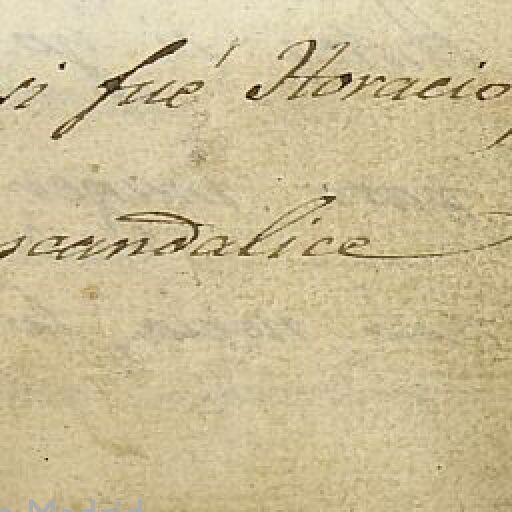 si fué Horacio,
scandalice
Madrid